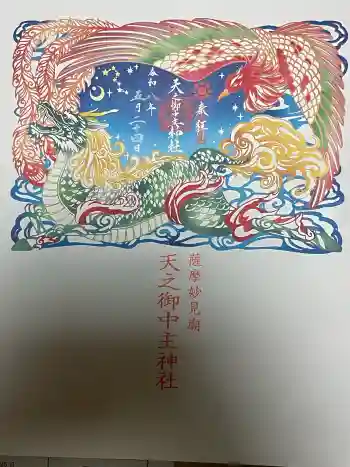 奉拝
天之御中主神社
令和八年
五月二十四日
薩摩妙見廟
天之御中主神社